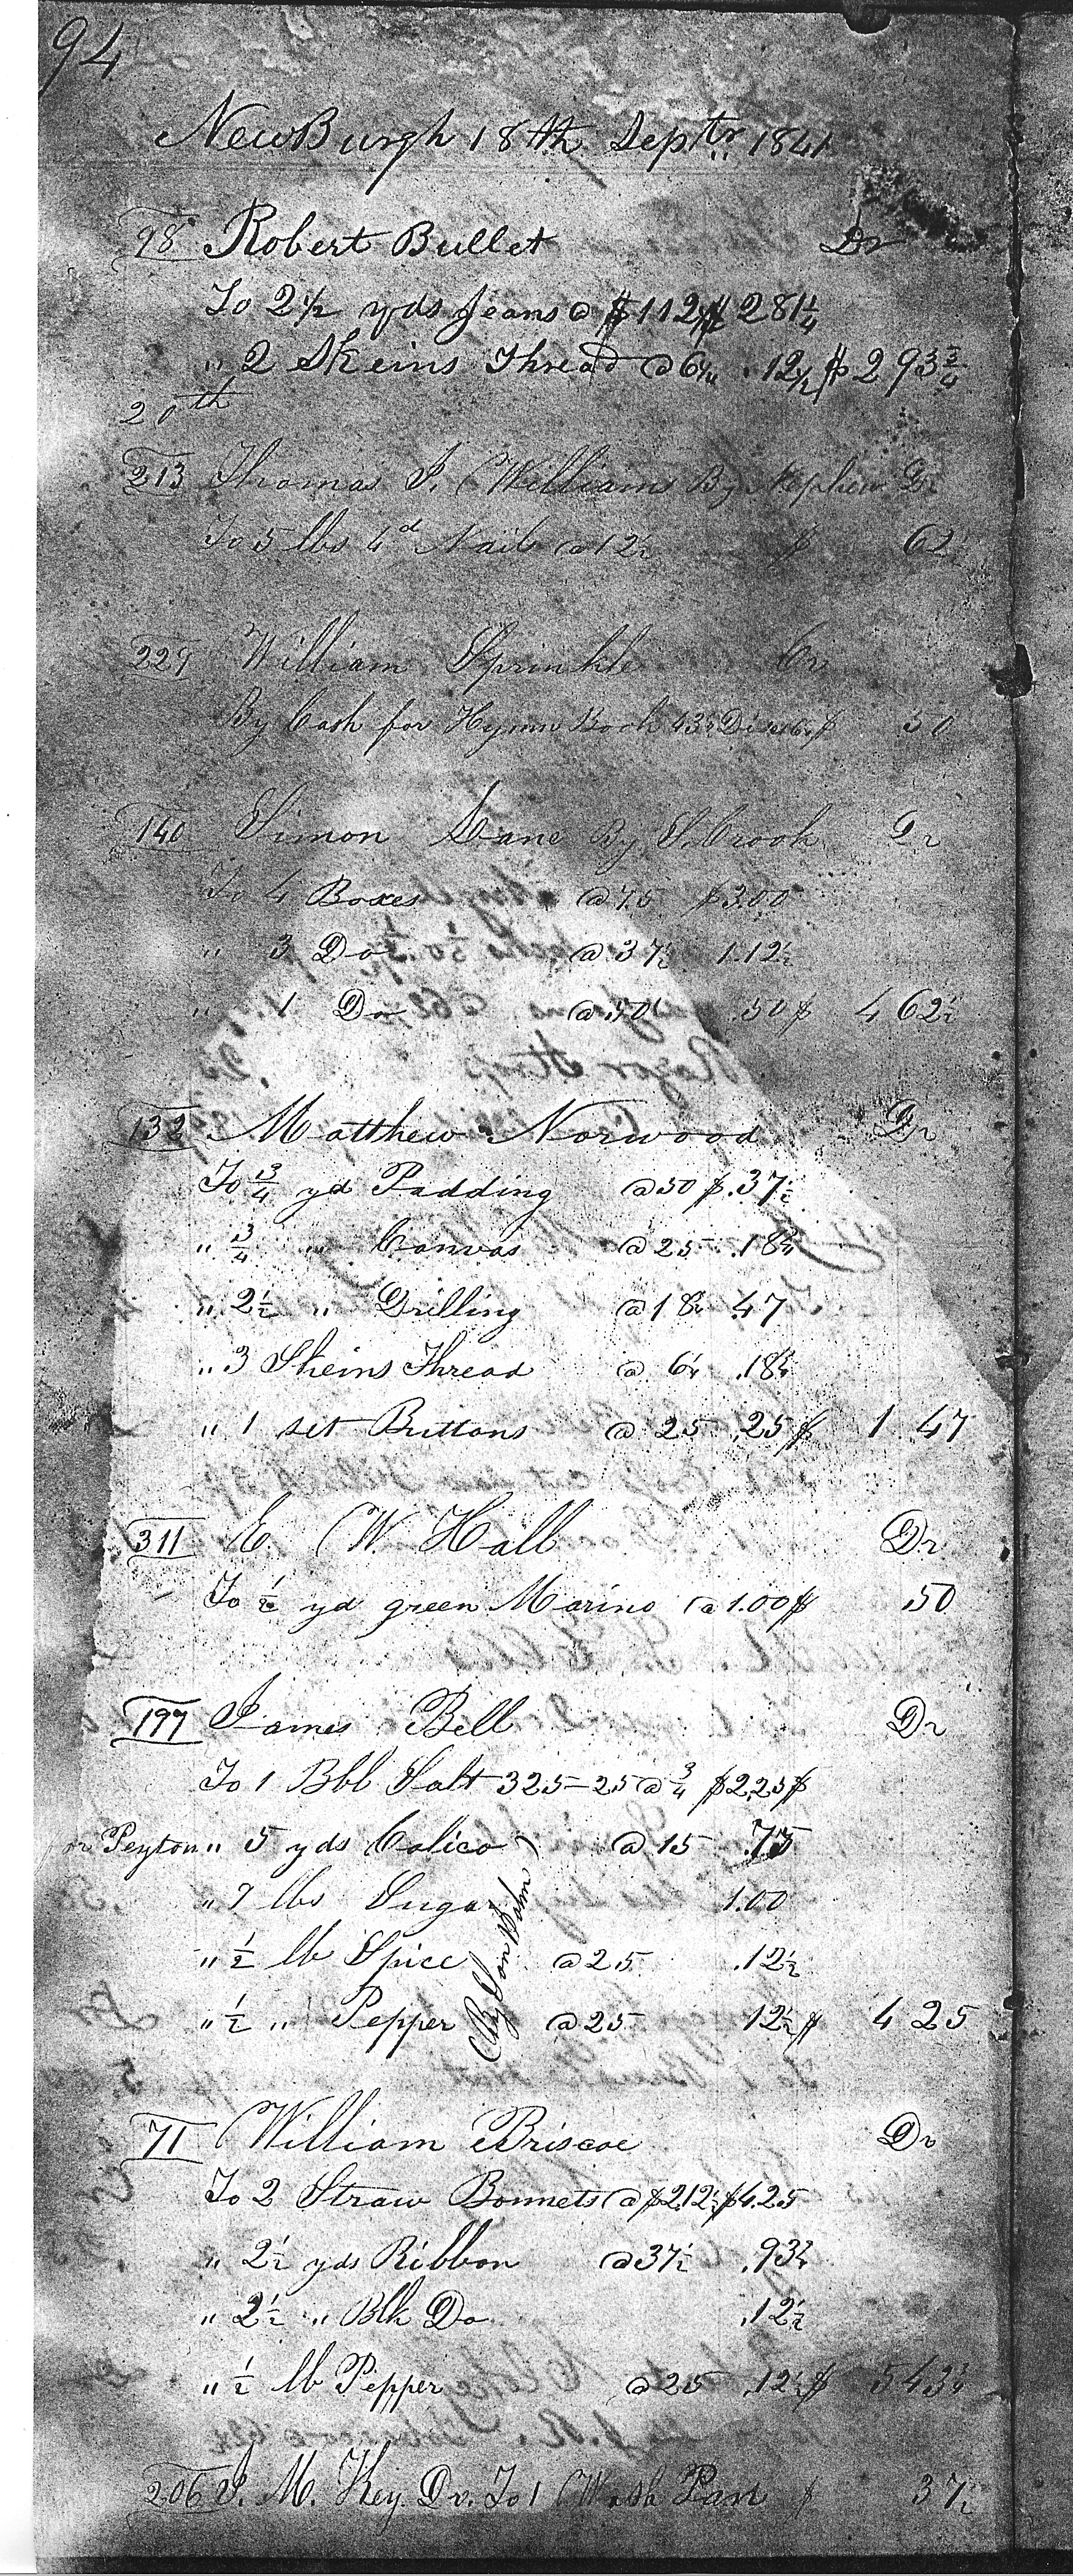 94
NewBurgh 18th Septr 1841
98 Robert Bullet Dr
To 2 1/2 yds Jeans @ $1 12 1/2 $ 2 81 1/4
" 2 Skeins Thread @ 6 1/4 . 12 1/2 $ 2 93 3/4
20th
213 Thomas J. Williams By Nephew Dr
To 5 lbs 4d Nails @ 12 1/2 $ 62 1/2
229 William Sprinkle Cr
By Cash for Hymn Book 43 3/4 $ 50
140 Simon Lane By S. Crook Dr
To 4 Boxes @ 75 $3.00
" 3 Do @ 37 1/2 1.12 1/2
" 1 Do @ 50 .50 $ 4 62 1/2
132 Matthew Norwood Dr
To 3/4 yd Padding @ 50 $ .37 1/2
" 3/4 " Canvas @ 25 .18 3/4
" 2 1/2 " Drilling @ 18 3/4 .47
" 3 Skeins Thread @ 6 1/4 .18 3/4
" 1 set Buttons @ 25 .25 $ 1 47
311 E. W. Hall Dr
To 1/2 yd green Marino @ 1.00 $ .50
197 James Bell Dr
To 1 Bbl Salt 325-25 @ 3/4 $2.25 $
Peyton " 5 yds Calico @ 15 .75
" 7 lbs Sugar 1.00
" 1/2 lb Spice @ 25 .12 1/2
" 1/2 " Pepper @ 25 12 1/2 $ 4 25
By Son John
71 William Briscoe Dr
To 2 Straw Bonnets @ $2.12 1/2 $4.25
" 2 1/2 yds Ribbon @ 37 1/2 .93 3/4
" 2 1/2 " Blk Do .12 1/2
" 1/2 lb Pepper @ 25 .12 1/2 $ 5 43 3/4
206 J. M. Key Dr. To 1 Wash Pan $ 37 1/2